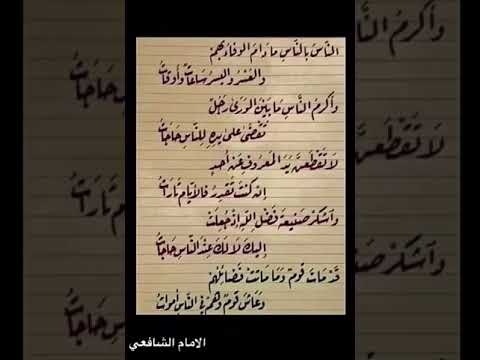 الناسُ بالنَّاسِ مادامَ الوفاءُ بهمُ
والعُسْرُ واليسرُ ساعاتٌ وأوقاتُ
وأكرمُ النَّاسِ ما بَيْنَ الوَرى رَجُلٌ
تُقْضى على يدهِ للنَّاسِ حاجاتُ
لا تَقْطَعَنَّ يَدَ المَعروفِ عَنْ أَحَدٍ
إنْ كنتَ تَقْدِرُ فالأيّامُ تاراتُ
وآشكرْ صَنيعةَ فَضْلِ اللهِ إذْ جُعِلَتْ
إليكَ لا لَكَ عِنْدَ النَّاسِ حاجاتُ
قَدْ ماتَ قومٌ وَما ماتتْ فضائلُهُمْ
وعَاشَ قومٌ وَهُمْ في النَّاسِ أمواتُ
الامام الشافعي